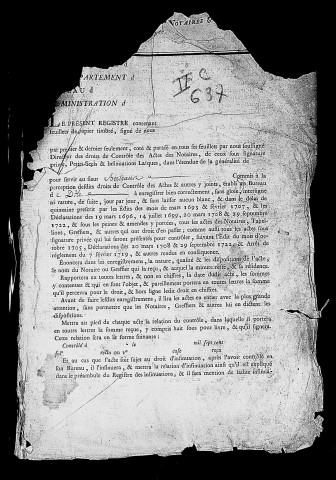 NOTAIRES
DÉPARTEMENT d
EAU d
DMINISTRATION d
II C
637
LE PRESENT REGISTRE contenant
feuillets de papier timbré, signé de nous
par premier & dernier seulement, coté & parafé en tous ses feuillets par nous soussigné
Directeur des droits de Contrôle des Actes des Notaires, de ceux sous signature
privée, Petits-Scels & Insinuations Laïques, dans l'étendue de la généralité de
pour servir au sieur Commis à la
perception desdits droits de Contrôle des Actes & autres y joints, établis au Bureau
d à enregistrer bien correctement, sans glose, interligne
ni rature, de suite, jour par jour, & sans laisser aucun blanc, & dans le délai de
quinzaine prescrit par les Edits des mois de mars 1693 & février 1707, & les
Déclarations des 19 mars 1696, 14 juillet 1699, 20 mars 1708 & 29 septembre
1722, & sous les peines & amendes y portées, tous les actes des Notaires, Tabel-
lions, Greffiers, & autres qui ont droit d'en passer; comme aussi tous les actes sous
signature privée qui lui seront présentés pour contrôler, suivant l'Edit du mois d'oc-
tobre 1705, Déclarations des 20 mars 1708 & 29 septembre 1722, & Arrêt de
règlement du 7 février 1719, & autres rendus en conséquence.
Enoncera dans les enregistrements, la nature, qualité & les dispositions de l'acte,
le nom du Notaire ou Greffier qui l'a reçu, & auquel la minute reste, & sa résidence.
Rapportera en toutes lettres, & non en chiffres, la date dudit acte, les sommes
y contenues & qui en sont l'objet, & pareillement portera en toutes lettres la somme
qu'il percevra pour le droit, & hors ligne ledit droit en chiffres.
Avant de faire lesdits enregistrements, il lira les actes en entier avec la plus grande
attention, sans permettre que les Notaires, Greffiers & autres lui en dictent les
dispositions.
Mettra au pied de chaque acte la relation du contrôle, dans laquelle il portera
en toutes lettres la somme reçue, y compris huit sous pour livre, & qu'il signera.
Cette relation sera en la forme suivante:
Contrôlé à le mil sept cent
fol. recto ou v° case reçu
Et au cas que l'acte soit sujet au droit d'insinuation, après l'avoir contrôlé en
son Bureau, il l'insinuera, & mettra la relation d'insinuation ainsi qu'il est expliqué
dans le préambule du Registre des insinuations, & il fera mention de ladite insinua-